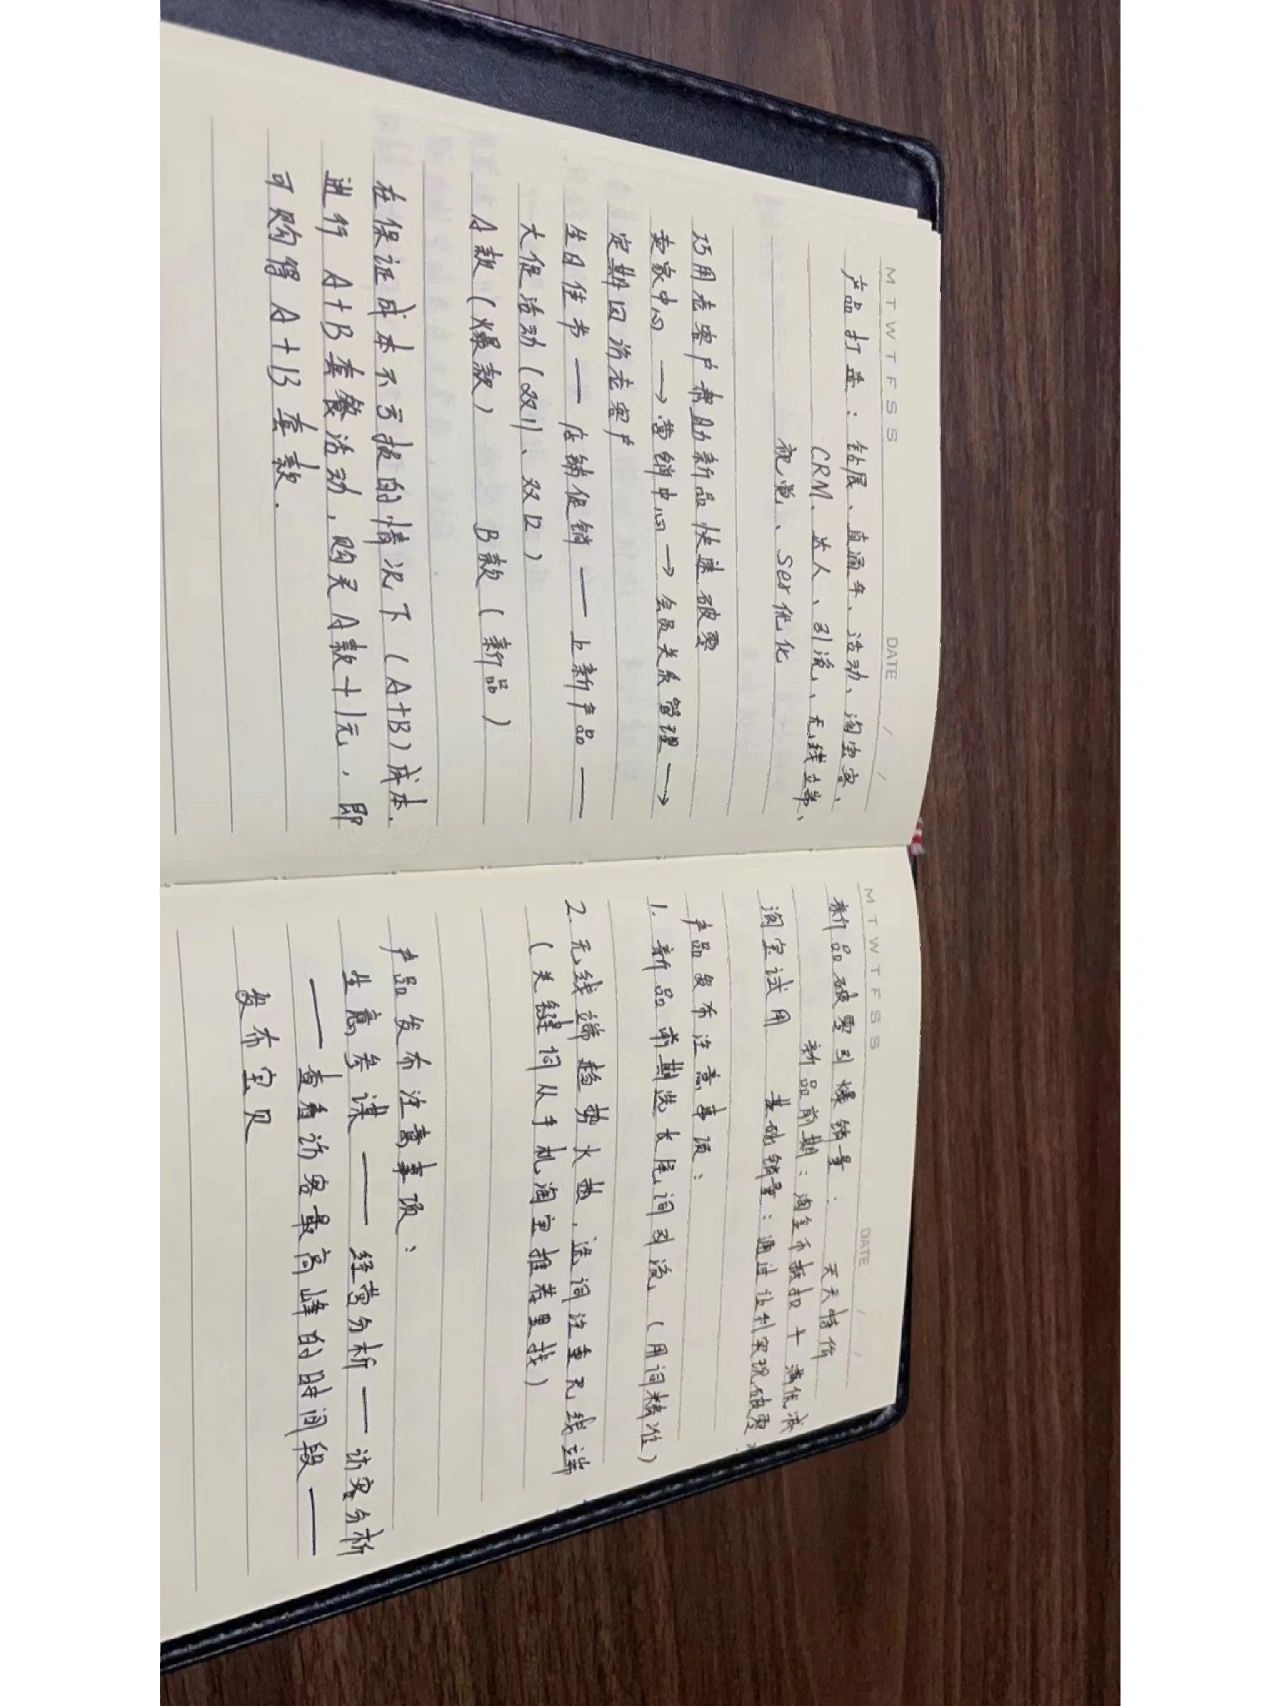 M T W T F S S DATE / /
产品打造：钻展、直通车、活动、淘宝客、
CRM、达人、引流、无线端、
视觉、Ser优化
巧用老客户帮助新品快速破零
卖家中心 → 营销中心 → 会员关系管理 →
定期回访老客户
生日佳节 —— 店铺促销 —— 上新产品 ——
大促活动（双11、双12）
A款（爆款） B款（新品）
在保证成本不亏损的情况下（A+B）成本.
进行 A+B套餐活动，购买A款+1元，即
可购得A+B套款.
M T W T F S S DATE / /
新品破零引爆销量： 天天特价
新品前期：淘金币抵扣 + 满优减
淘宝试用 基础销量：通过让利实现破零
产品发布注意事项：
1. 新品前期选长尾词引流，（用词精准）
2. 无线端趋势火热，选词注重无线端
（关键词从手机淘宝推荐里找）
产品发布注意事项：
生意参谋 —— 经营分析 —— 访客分析
—— 查看访客最高峰的时间段 ——
发布宝贝